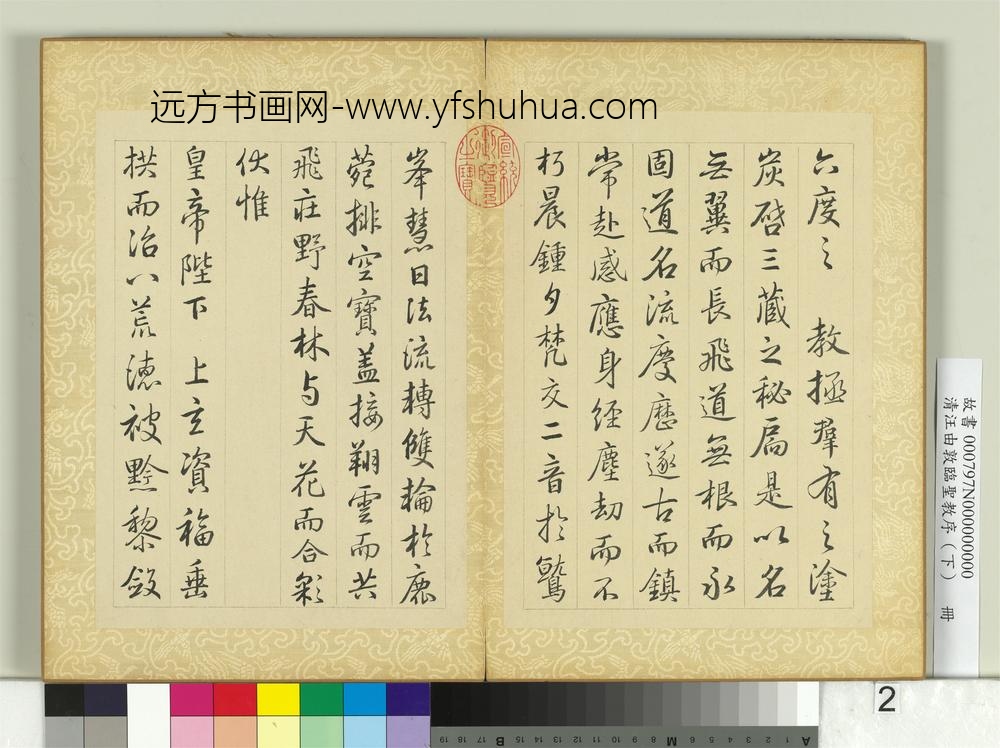 远方书画网-www.yfshuhua.com
六度之 教拯羣有之塗
炭啓三藏之秘扃是以名
无翼而長飛道無根而永
固道名流慶歷遂古而鎮
常赴感應身經塵劫而不
朽晨鍾夕梵交二音於鷲
宣統御覽之寶
峯慧日法流轉雙輪於鹿
菀排空寶蓋接翔雲而共
飛莊野春林与天花而合彩
伏惟
皇帝陛下 上玄資福垂
拱而治八荒德被黔黎斂
故書 000797N000000000
清汪由敦臨聖教序(下) 冊
2
19 18 17 16 15 B 14 13 12 11 10 9 8 M 7 6 5 4 3 2 1 A